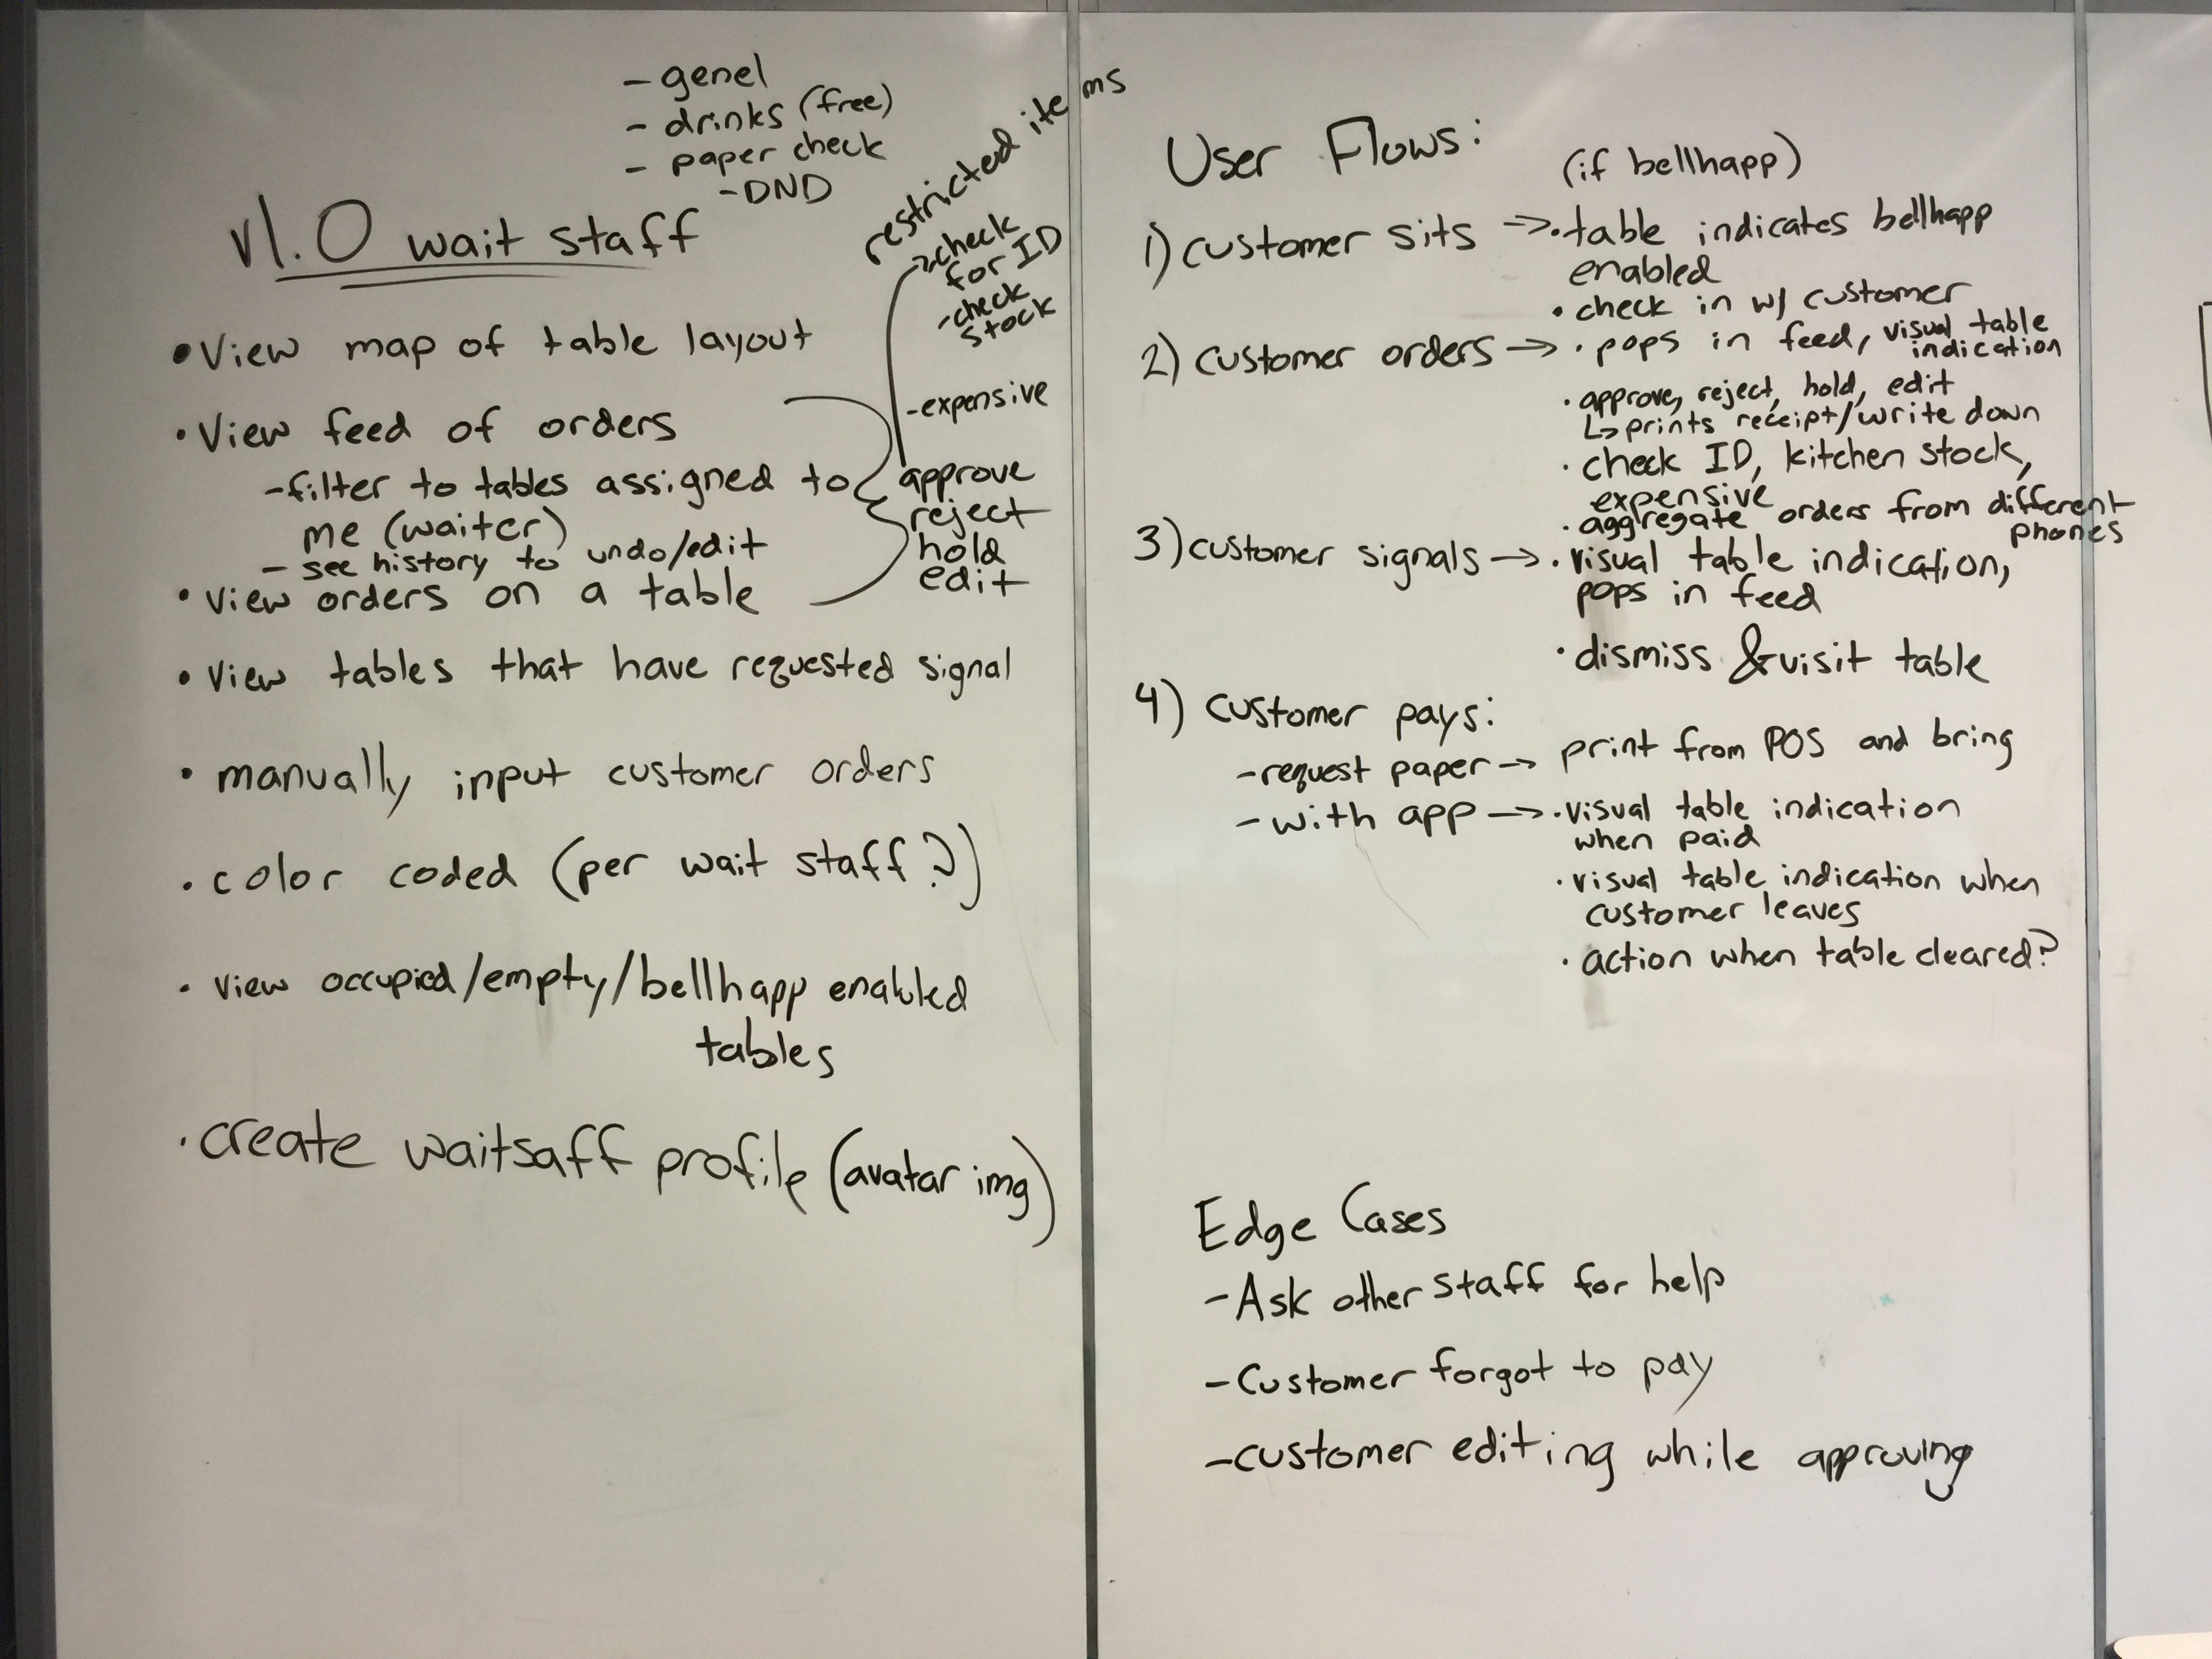 - genel
- drinks (free)
- paper check
- DND
restricted items
v1.0 wait staff
→ check
for ID
- check
stock
• View map of table layout
- expensive
• View feed of orders
- filter to tables assigned to
me (waiter)
- see history to undo/edit
approve
reject
hold
edit
• View orders on a table
• View tables that have requested signal
• manually input customer orders
• color coded (per wait staff?)
• view occupied/empty/bellhapp enabled
tables
• create waitsaff profile (avatar img)
User Flows:
(if bellhapp)
1) customer sits → • table indicates bellhapp
enabled
• check in w/ customer
2) customer orders → • pops in feed, visual table
indication
• approve, reject, hold, edit
↳ prints receipt/write down
• check ID, kitchen stock,
expensive
• aggregate orders from different
phones
3) customer signals → • visual table indication,
pops in feed
• dismiss & visit table
4) customer pays:
- request paper → print from POS and bring
- with app → • visual table indication
when paid
• visual table indication when
customer leaves
• action when table cleared?
Edge Cases
- Ask other staff for help
- Customer forgot to pay
- customer editing while approving